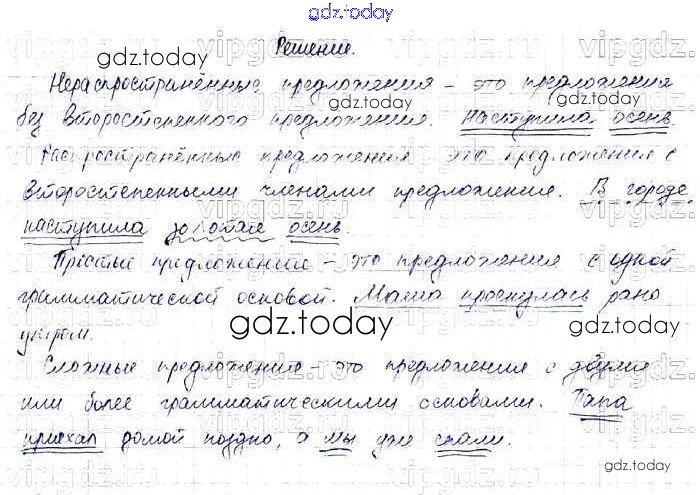 gdz.today
Решение.
Нераспространённые предложения – это предложения
без второстепенного предложения. Наступила осень.
Распространённые предложения это предложения с
второстепенными членами предложения. В городе
наступила золотая осень.
Простые предложения – это предложения с одной
грамматической основой. Мама проснулась рано
утром.
Сложные предложения – это предложения с двумя
или более грамматическими основами. Папа
приехал домой поздно, а мы уже спали.
gdz.today
gdz.today
gdz.today
gdz.today
gdz.today
gdz.today
gdz.today